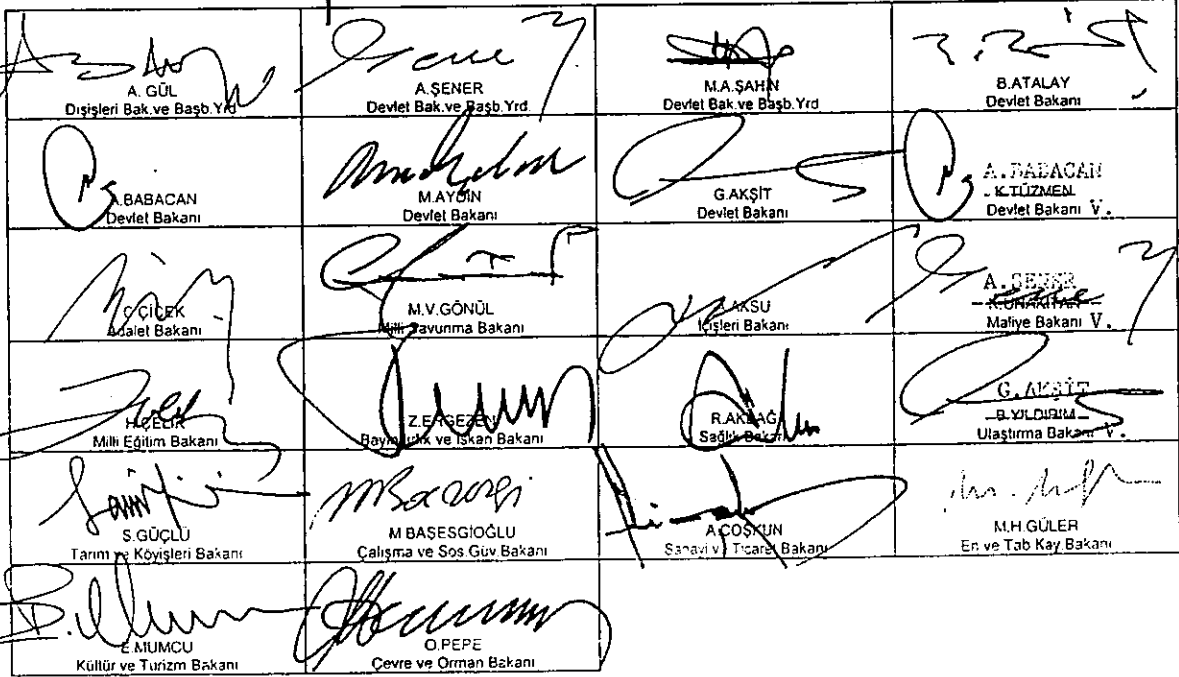 A. GÜL
Dışişleri Bak.ve Başb.Yrd
A.ŞENER
Devlet Bak.ve Başb.Yrd
M.A.ŞAHİN
Devlet Bak.ve Başb.Yrd
B.ATALAY
Devlet Bakanı
A.BABACAN
Devlet Bakanı
M.AYDIN
Devlet Bakanı
G.AKŞİT
Devlet Bakanı
A.BABACAN
K.TÜZMEN
Devlet Bakanı V.
C.ÇİÇEK
Adalet Bakanı
M.V.GÖNÜL
Milli Savunma Bakanı
A.AKSU
İçişleri Bakanı
A.ŞENER
K.UNAKITAN
Maliye Bakanı V.
H.ÇELİK
Milli Eğitim Bakanı
Z.ERGEZEN
Bayındırlık ve İskan Bakanı
R.AKDAĞ
Sağlık Bakanı
G.AKŞİT
B.YILDIRIM
Ulaştırma Bakanı V.
S.GÜÇLÜ
Tarım ve Köyişleri Bakanı
M.BAŞESGİOĞLU
Çalışma ve Sos.Güv.Bakanı
A.COŞKUN
Sanayi ve Ticaret Bakanı
M.H.GÜLER
En.ve Tab.Kay.Bakanı
E.MUMCU
Kültür ve Turizm Bakanı
O.PEPE
Çevre ve Orman Bakanı